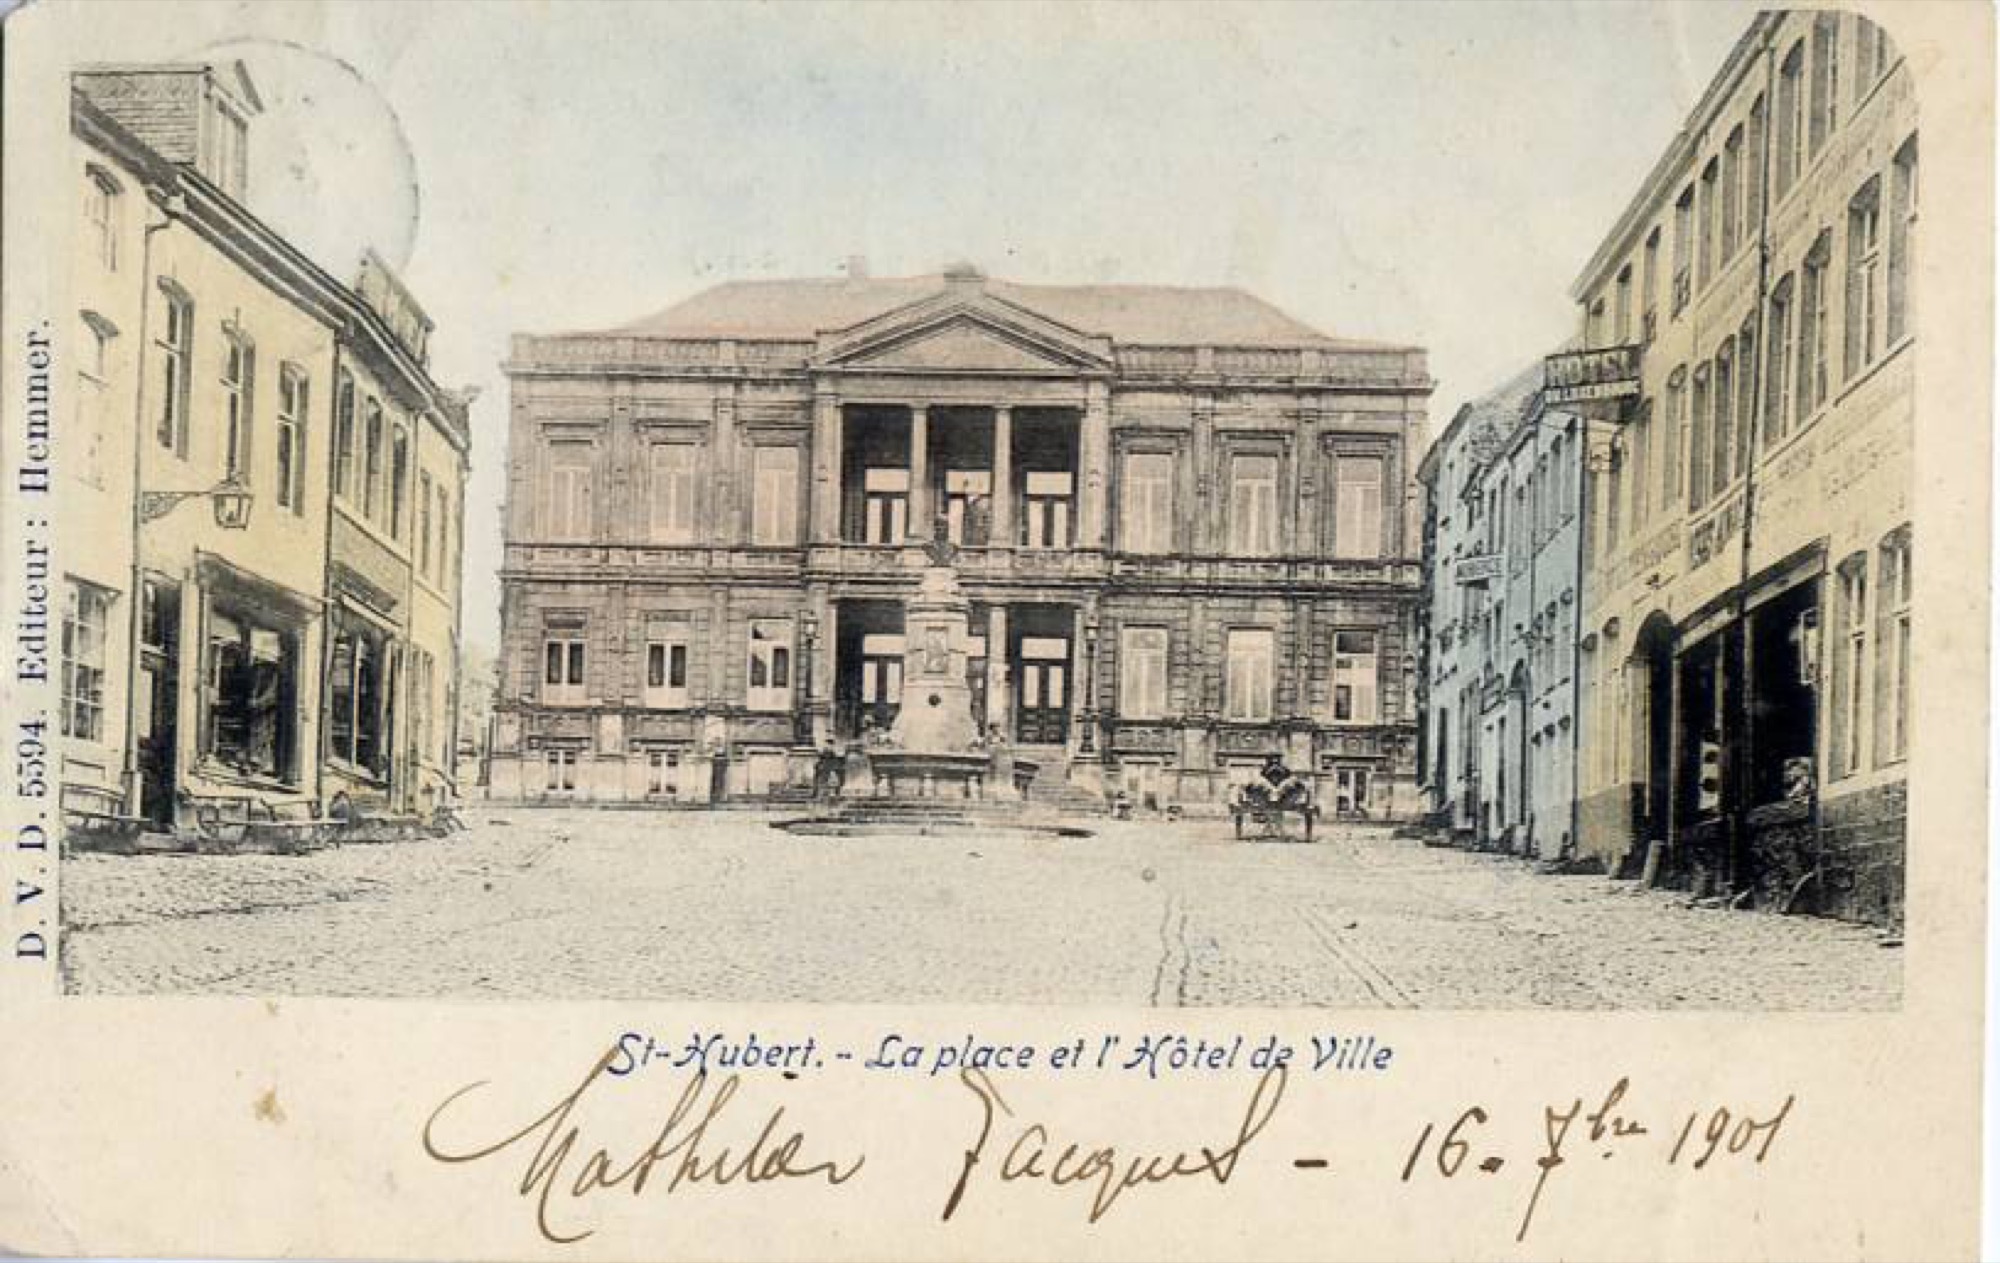 D. V. D. 5594. Editeur : Hemmer.
HOTEL
DU LUXEMBOURG
St-Hubert. - La place et l'Hôtel de Ville
Mathilde Jacques - 16. 7bre 1901